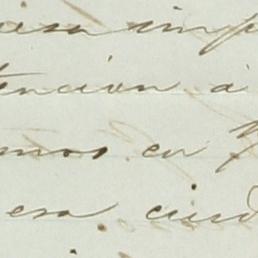 imp
tencion á
mos en
esa ciud